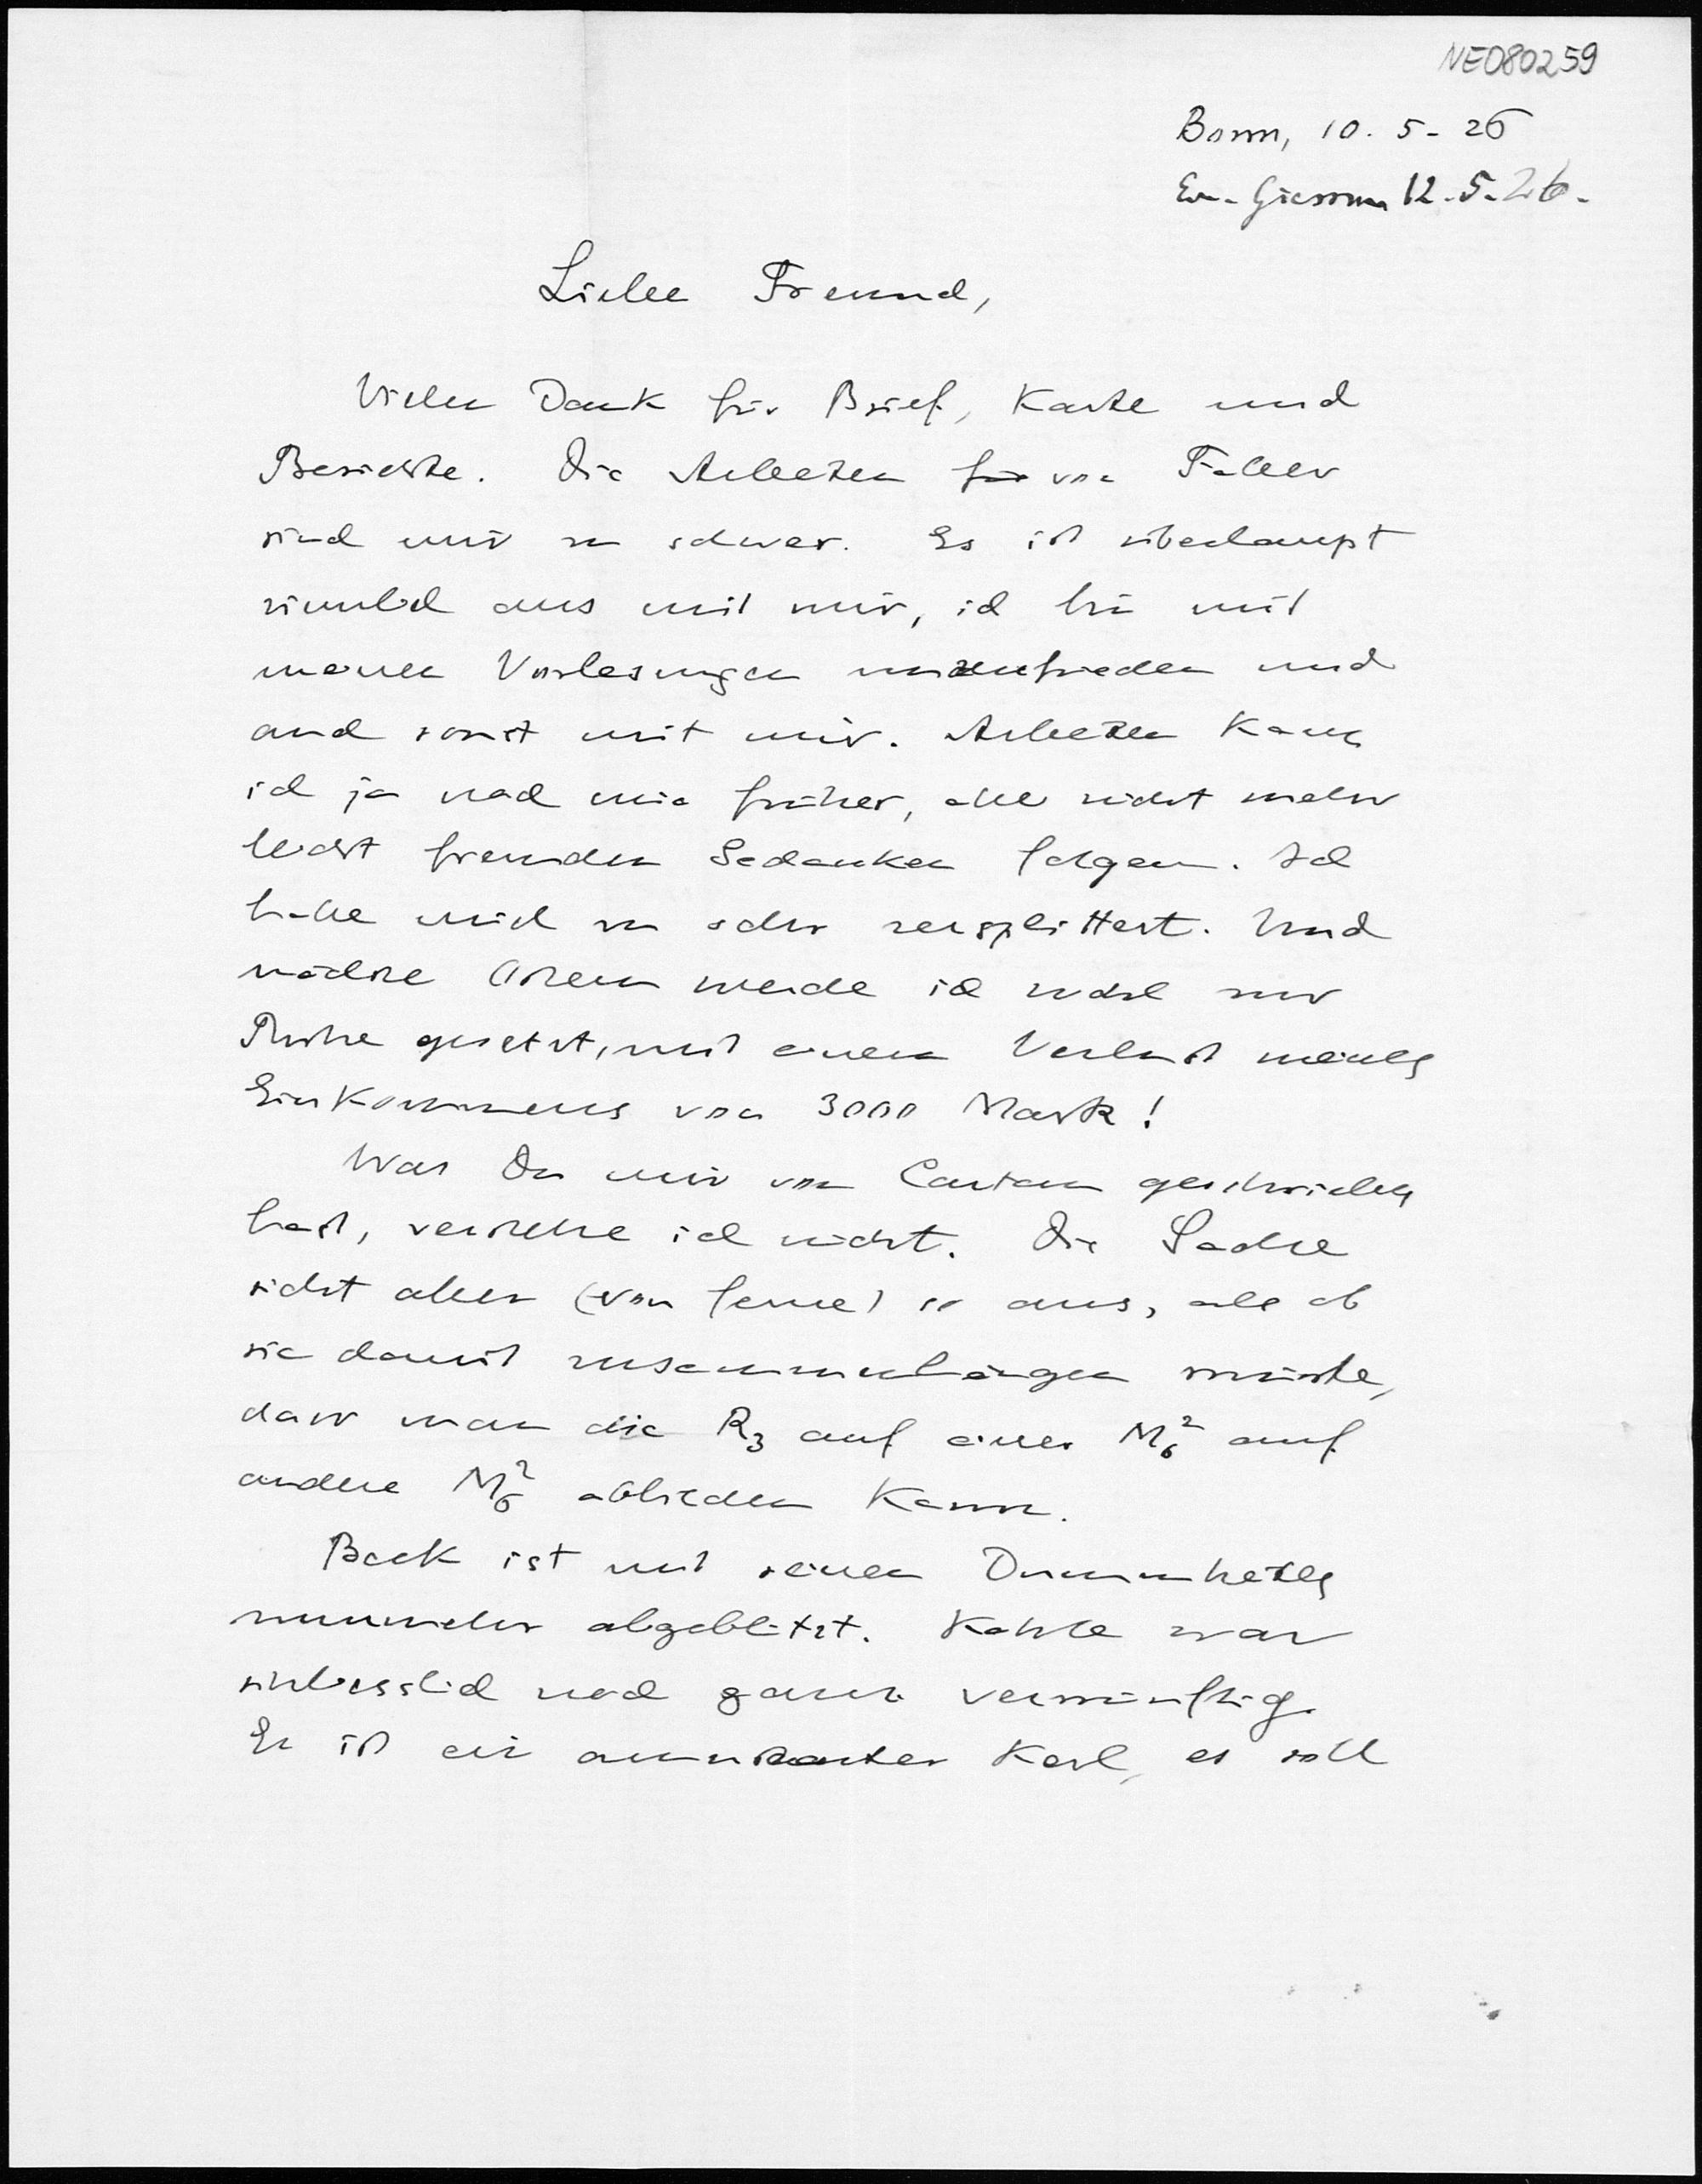 NE080259
Bonn, 10. 5. 26
Giessen 12.5.26.
Lieber Freund,
Vielen Dank für Brief, Karte und
Berichte. Die Arbeiten für von Faber
sind mir zu schwer. Es ist überhaupt
ziemlich aus mit mir, ich bin mit
meinen Vorlesungen unzufrieden und
auch sonst mit mir. Arbeiten kann
ich ja noch wie früher, aber nicht mehr
leicht fremden Gedanken folgen. Ich
habe mich zu sehr zersplittert. Und
nächste Ostern werde ich wohl zur
Ruhe gesetzt, mit einem Verlust meines
Einkommens von 3000 Mark!
Was Du mir von Cartan geschrieben
hast, verstehe ich nicht. Die Sache
sieht aber (von ferne) so aus, als ob
sie damit zusammenhängen müsste,
dass man die R₃ auf einer M₆² auf
andere M₆² abbilden kann.
Beck ist mit seinen Dummheiten
nunmehr abgeblitzt. Kahle war
schliesslich noch ganz vernünftig.
Er ist ein amüsanter Kerl, er soll